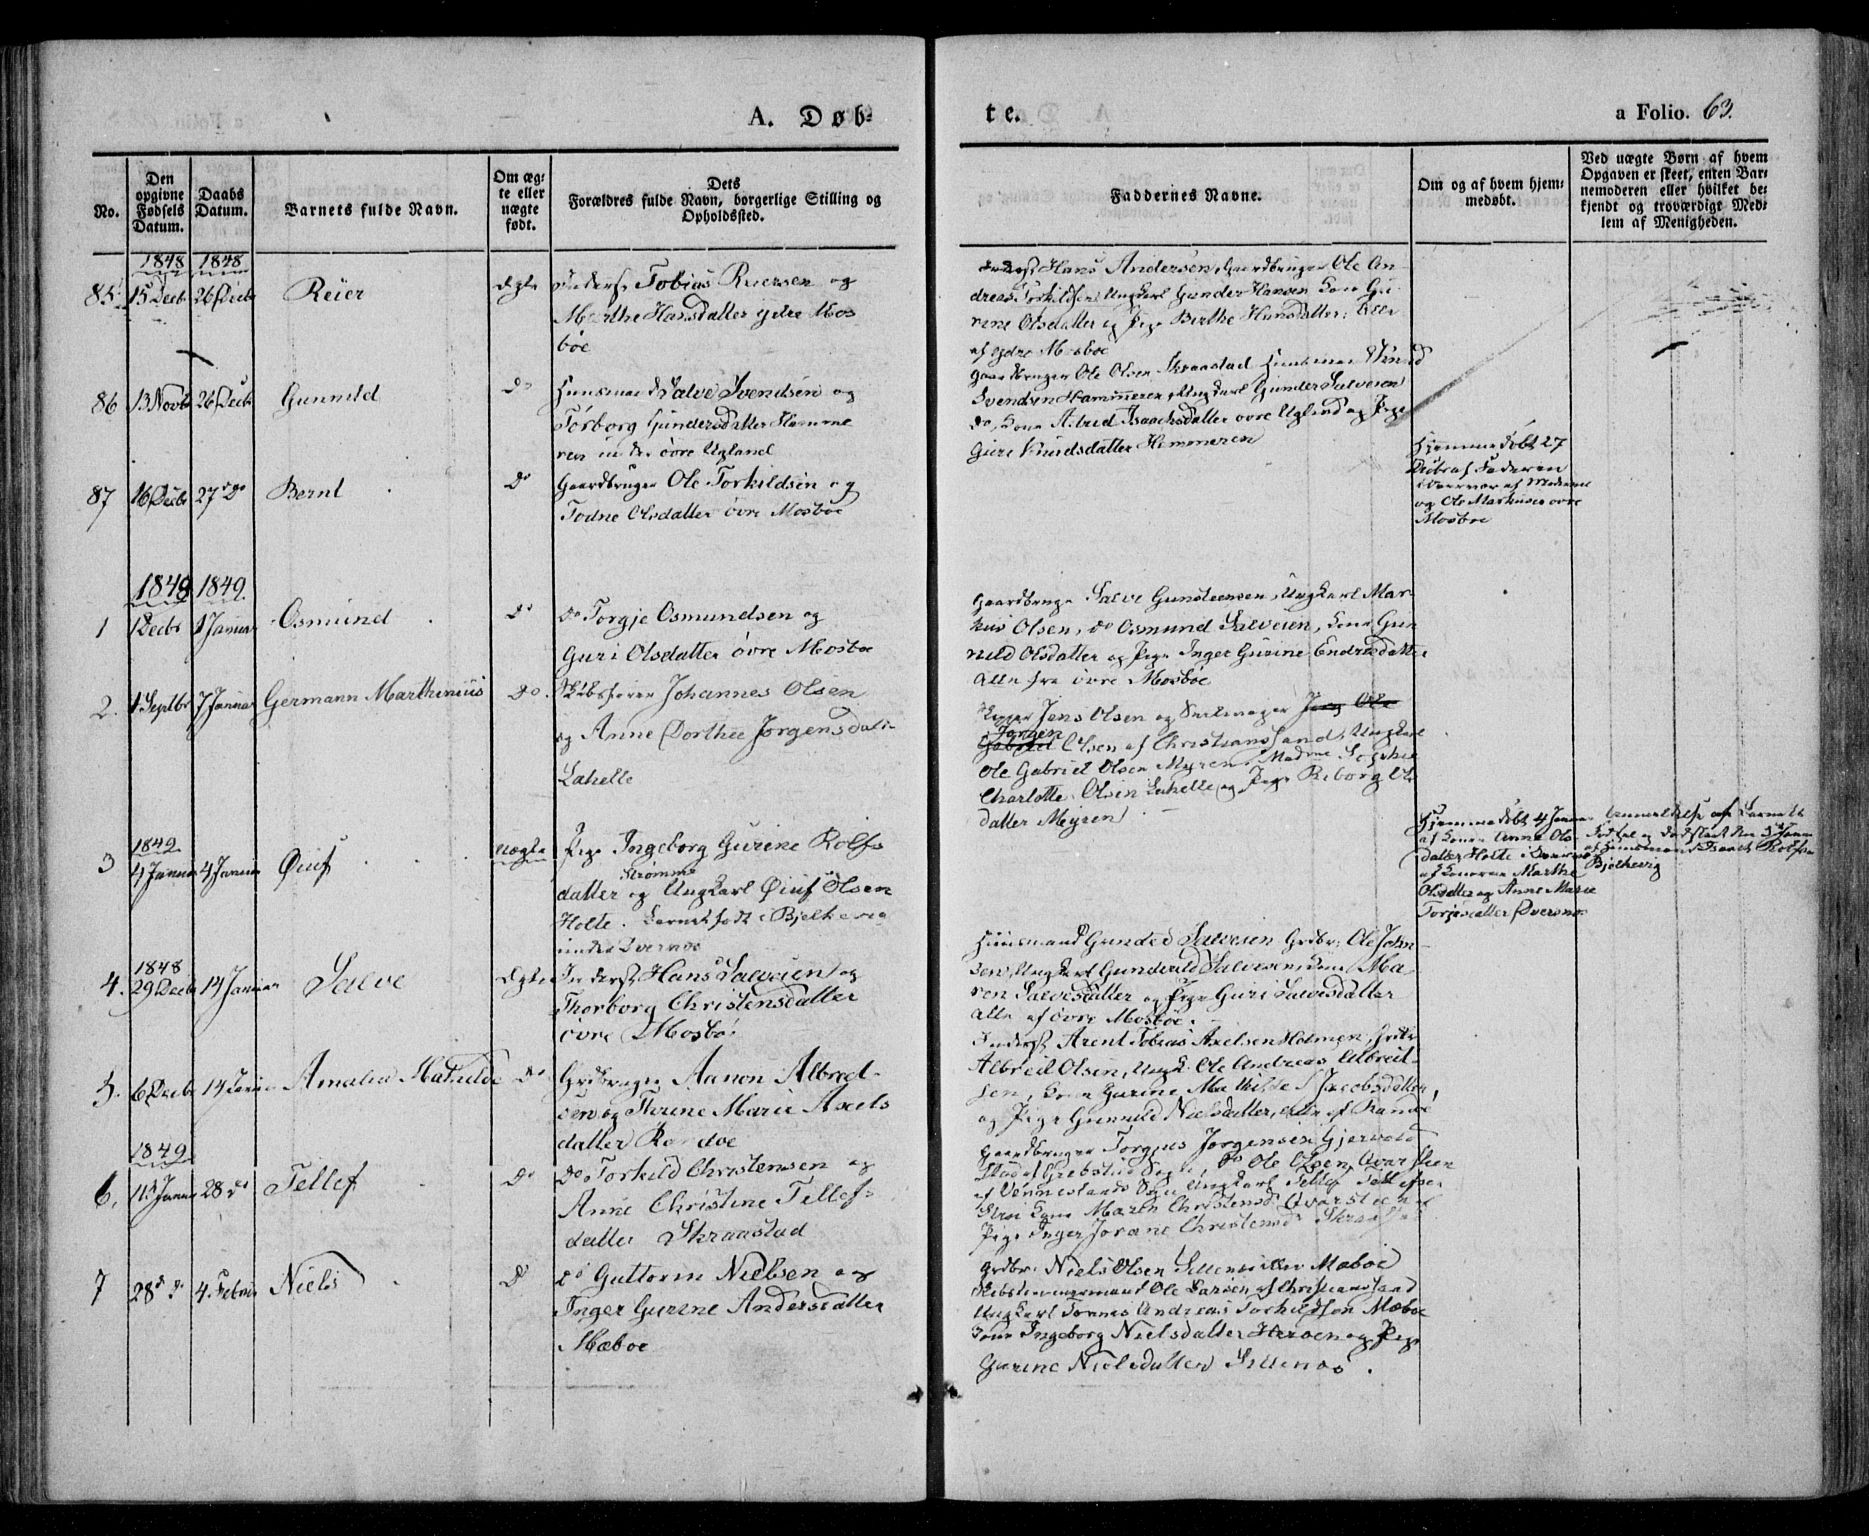 A. Døb-
te.
a Folio. 63.
No.
Den
opgivne
Fødsels
Datum.
Daabs
Datum.
Barnets fulde Navn.
Om æg-
te eller
uægte
født.
Dets
Forældres fulde Navn, borgerlige Stilling og
Opholdssted.
Faddernes Navne.
Om og af hvem hjem-
medøbt.
Ved uægte Børn af hvem
Opgaven er skeet, enten Bar-
nemoderen eller hvilket be-
kjendt og troværdigt Med-
lem af Menigheden.
1848 1848
85 15 Decbr 26 Decbr Reier Ægte Inderst Tobias Reiersen og
Marthe Hansdatter ydre Mos
böe
Inderst Hans Andersen, Gaardbruger Ole An-
dreas Torkildsen, Ungkarl Gunder Hansen Kone Gu-
rine Olsdatter og Pige Birthe Hansdatter, Alle
af ydre Mosboe
86 13 Novbr 26 Decbr Gunnild Do Huusmand Salve Svendsen og
Torborg Gundersdatter Hamme
ren under övre Ugland
Gaardbruger Ole Olsen Skraastad Huusmand
Svendsen Hammeren, Ungkarl Gunder Salvesen
do, Kone Astrid Isaachsdatter övre Ugland og Pige
Guri Knudsdatter Hammeren
87 16 Decbr 27 do Bernt Do Gaardbruger Ole Torkildsen og
Todne Olsdatter övre Mosboe
Hjemmedöbt 27
Decbr af Faderen
i Overvær af Moderen
og Ole Markusen övre
Mosboe
1848 1849.
1 1 Decbr 1 Januar Osmund Do Do Torgje Osmundsen og
Guri Olsdatter övre Mosboe
Gaardbruger Salve Gunsteensen, Ungkarl Mar-
kus Olsen, do Osmund Salvesen, Kone Gun-
nild Olsdatter og Pige Inger Gurine Endresdatter
Alle fra övre Mosböe
2. 1 Septbr 7 Januar Germann Marthinius Do. Skibsförer Johannes Olsen
og Anne Dorthee Jorgensdatt.
Lahelle
Skipper Jens Olsen og Jens Ole
Jorgen
Gabriel Olsen af Christianssand, Ungkarl
Ole Gabriel Olsen Myren, Madme Sophie
Charlotte Olsen Lahelle og Pige Reborg Ols
datter Myren
1849
3 4 Januar 4 Januar Öiuf uægte Pige Ingeborg Gurine Rolfs
Strömme
datter og Ungkarl Öiuf Olsen
Holte. Barnet födt i Bjelkevig
under Dversnoe
Hjemmedöbt 4 Januar
af Konen Anne Ols-
datter Holte i Overvær
af Konerne Marthe
Olsdatter og Anne Marie
Torjesdatter Dversnoe
Anmeldelse om Barnets
Födsel og Död skeet den 5 Janu
af Huusmand Isaach Rolfsen
Bjelkevig
1848
4. 29 Decbr 14 Januar Salve Ægte Inderst Hans Salvesen og
Thorborg Christensdatter
övre Mosböe
Huusmand Gunder Salvesen Grdbr: Ole John-
sen, Ungkarl Gundvald Salvesen, Kone Ma
ren Salvesdatter og Pige Guri Salvesdatter
alle af övre Mosböe.
5. 6 Decbr 14 Januar Amalia Mathilde Do Grdbruger Aanon Albred-
sen og Thrine Marie Axels
datter Randöe
Inderst Arent Tobias Axelsen Holmen,
Albreit Olsen, Ungk. Ole Andreas Albreit-
sen, Kone Gurine Mathilde Jacobsdatter,
og Pige Gunnild Nielsdatter, alle af Randöe
1849
6. 13 Januar 28 do Tellef Do Do Torkild Christensen og
Anne Christine Tellefs
datter Skraastad
Gaardbruger Torgius Jorgensen Gjervold
stad af Greebstad Sogn, Do Ole Olsen Qvarsteen
af Venneslands Sogn Ungkarl Tellef Tellefsen
Kone Maren Christensd Qvarsteen og
Pige Inger Jorane Christensd Skraastad
7 28 do 4 Februar Niels Do Do Guttorm Nielsen og
Inger Gurine Andersdatter
Mæboe
Grdbr. Niels Olsen Mæboe
Ole Larsen af Christianssand
Ungkarl Tönnes Andreas Torkildsen Mæboe
Kone Ingeborg Nielsdatter og Pige
Gurine Nielsdatter